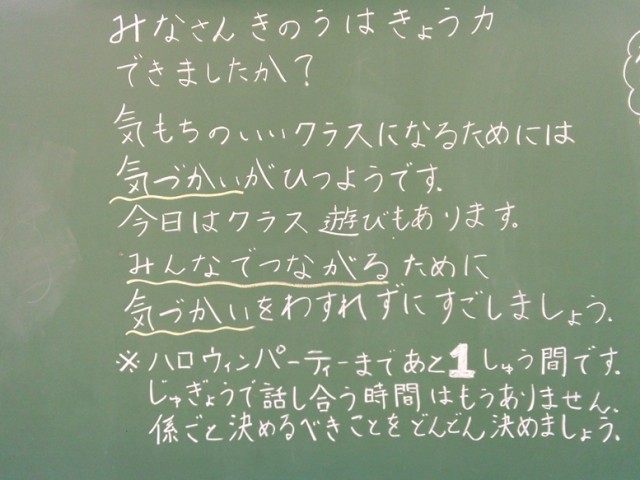 みなさんきのうはきょう力
できましたか？
気もちのいいクラスになるためには
気づかいがひつようです。
今日はクラス遊びもあります。
みんなでつながるために
気づかいをわすれずにすごしましょう。
※ハロウィンパーティーまであと1しゅう間です。
じゅぎょうで話し合う時間はもうありません。
係ごと決めるべきことをどんどん決めましょう。